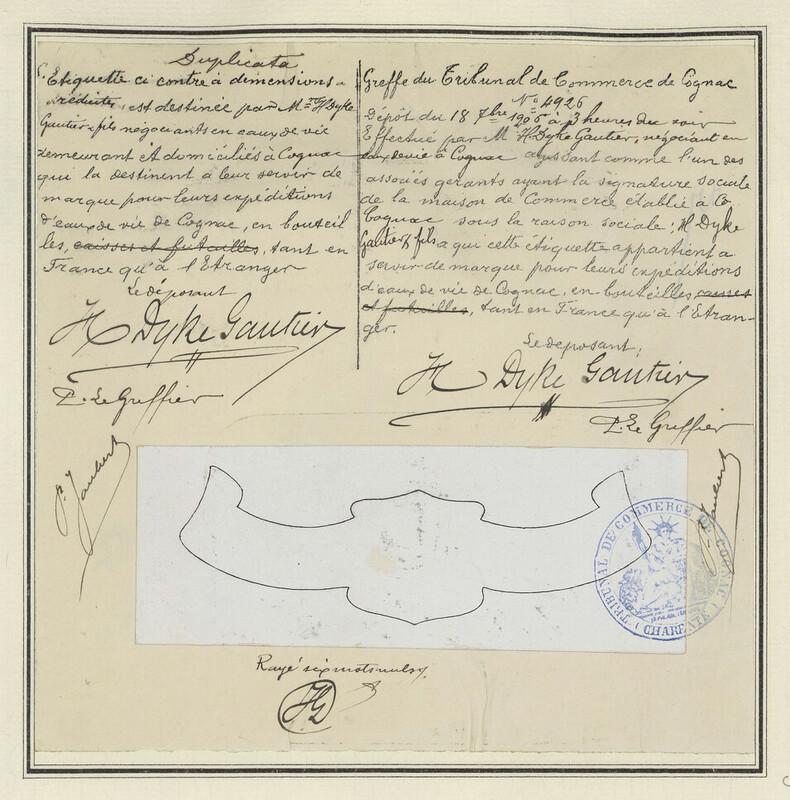 Duplicata
L'Etiquette ci contre à dimensions
réduites, est destinée par M. H Dyke
Gautier & fils négociants en eaux de vie
demeurant et domiciliés à Cognac
qui la destinent à leur servir de
marque pour leurs expéditions
d'eaux de vie de Cognac, en bouteil
les, caisses et futailles, tant en
France qu'à l'Etranger
Le déposant
H Dyke Gautier
P. Le Greffier
P. Jaubert
Greffe du Tribunal de Commerce de Cognac
N° 4926
Dépôt du 18 7bre 1906 à 3 heures du soir
Effectué par M H. Dyke Gautier, négociant en
eaux de vie à Cognac agissant comme l'un des
associés gérants ayant la signature sociale
de la maison de Commerce établie à Co
Cognac sous la raison sociale: H Dyke
Gautier & fils a qui cette étiquette appartient a
servir de marque pour leurs expéditions
d'eaux de vie de Cognac, en bouteilles, caisses
et futailles, tant en France qu'à l'Etran-
ger.
Le déposant,
H Dyke Gautier
P. Le Greffier
Jaubert
TRIBUNAL DE COMMERCE DE COGNAC
(CHARENTE)
Rayé six mots nuls
HD